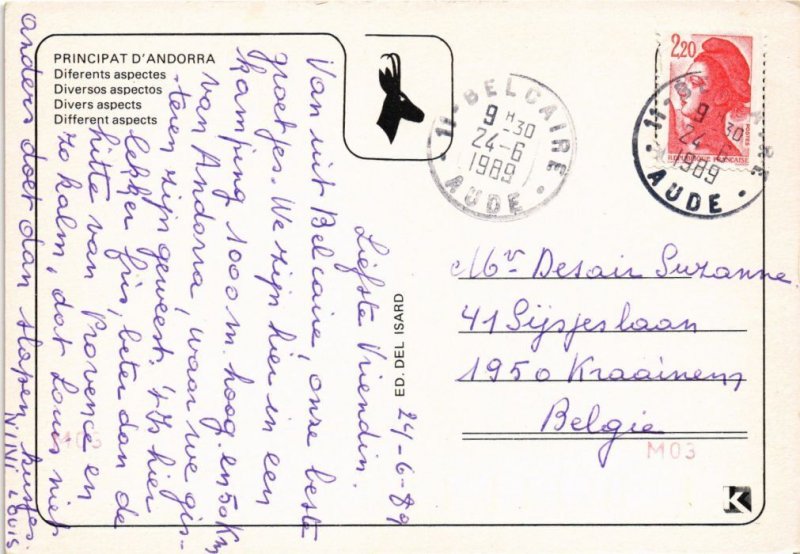 PRINCIPAT D'ANDORRA
Diferents aspectes
Diversos aspectos
Divers aspects
Different aspects
24-6-89
Liefste Vriendin.
Van uit Belcaire, onze beste
groetjes. We zijn hier in een
kamping 1000 m. hoog en 50 Km
van Andorra, waar we gis-
teren zijn geweest. 't Is hier
lekker fris, beter dan de
hitte van Provence en
zo kalm, dat Louis niet
anders doet dan slapen.
NiNi Louis
ED. DEL ISARD
11-BELCAIRE
9 H 30
24-6
1989
AUDE
2,20
POSTES
REPUBLIQUE FRANÇAISE
9 H 30
24-6
1989
AUDE
Mvr Desair Suzanne.
41 Sijsjeslaan
1950 Kraainem
België
M03
M03
K